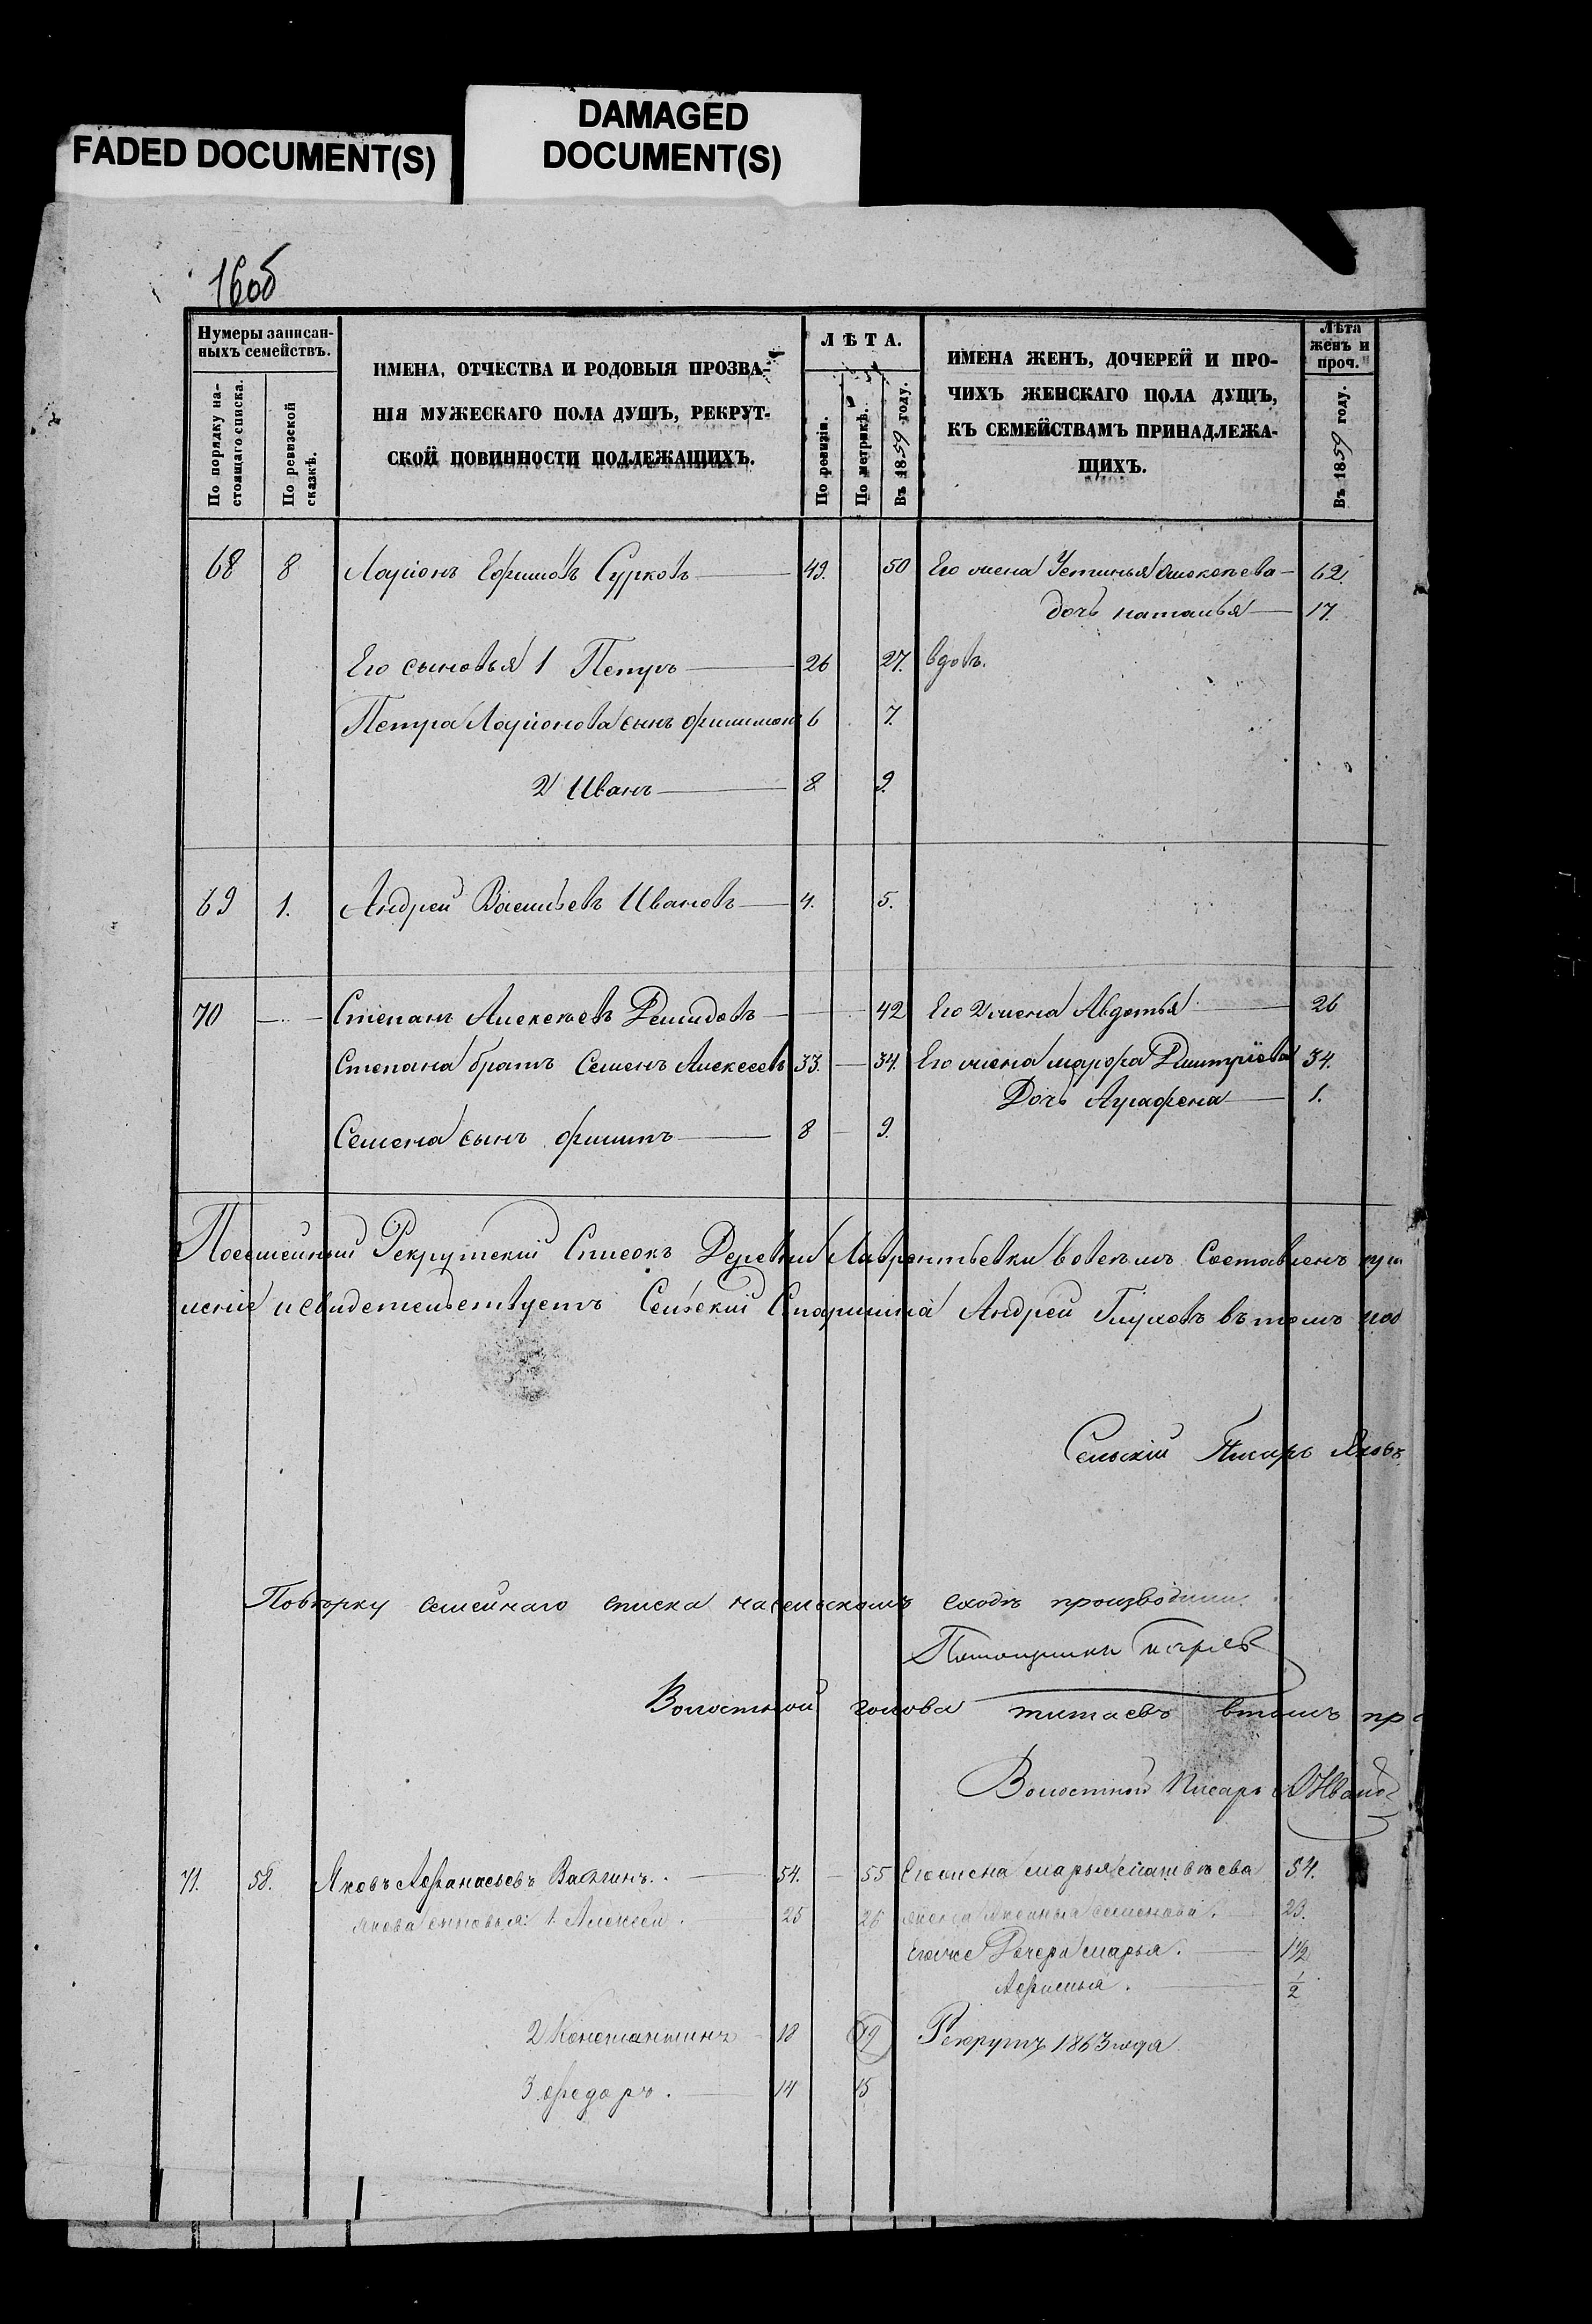 FADED DOCUMENT(S)
DAMAGED
DOCUMENT(S)
16об
Нумеры записан-
ныхъ семействъ.
По порядку на-
стоящаго списка.
По ревизской
сказкѣ.
ИМЕНА, ОТЧЕСТВА И РОДОВЫЯ ПРОЗВА-
НІЯ МУЖЕСКАГО ПОЛА ДУШЪ, РЕКРУТ-
СКОЙ ПОВИННОСТИ ПОДЛЕЖАЩИХЪ.
ЛѢТА.
По ревизіи.
По метрикѣ.
Въ 1859 году.
ИМЕНА ЖЕНЪ, ДОЧЕРЕЙ И ПРО-
ЧИХЪ ЖЕНСКАГО ПОЛА ДУШЪ,
КЪ СЕМЕЙСТВАМЪ ПРИНАДЛЕЖА-
ЩИХЪ.
Лѣта
женъ и
проч.
Въ 1859 году.
68 8 Ларіонъ Ефимовъ Сурковъ 49. 50 Его жена Устинья Алексѣева 62.
дочь наталья 17.
Его сыновья 1 Петръ 26 27. вдовъ.
Петра Ларіонова сынъ филимонъ 6 7.
2 Иванъ 8 9.
69 1. Андрей Васильевъ Ивановъ 4. 5.
70 Степанъ Алексѣевъ Демидовъ 42 Его 2 жена Авдотья 26
Степана братъ Семенъ Алексеевъ 33. 34. Его жена марфа Дмитріева 34.
Дочь Аграфена 1.
Семена сынъ филипъ 8 9.
Посемейный Рекрутскій Списокъ Деревни Лаврентьевки вовсемъ Составленъ
и свидетельствуетъ Сельскій Старшина Андрей Глуховъ въ томъ
Сельскій Писарь Яковъ
Повѣрку семейнаго списка на сельскомъ сходѣ производили.
Помощникъ
Волостной голова титаевъ втомъ
Волостной Писарь
71. 58. Яковъ Афанасьевъ Вагинъ. 54. 55 Его жена марья матвѣева 54.
якова сыновья: 1. Алексей. 25 26 семенова. 23.
Его же Дочери марья. 1 1/2
Афимья. 1/2
2 Константинъ 18 19 Рекрутъ 1863 года
3 федоръ. 14 15